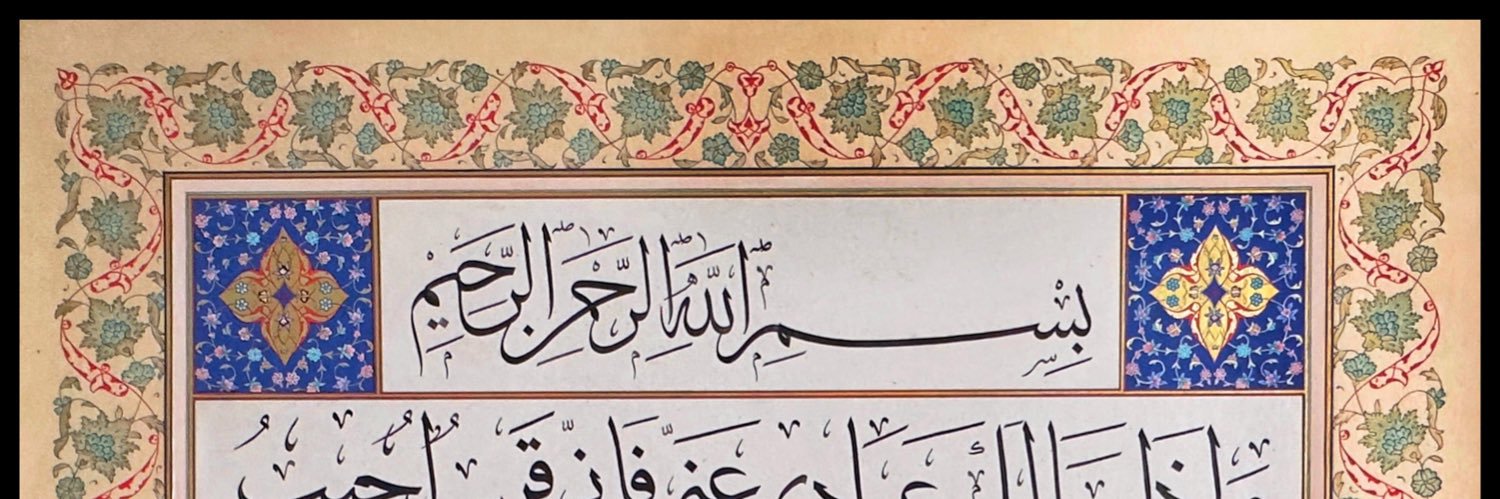 بِسْمِ اللَّهِ الرَّحْمَنِ الرَّحِيمِ
وَإِذَا سَأَلَكَ عِبَادِي عَنِّي فَإِنِّي قَرِيبٌ أُجِيبُ